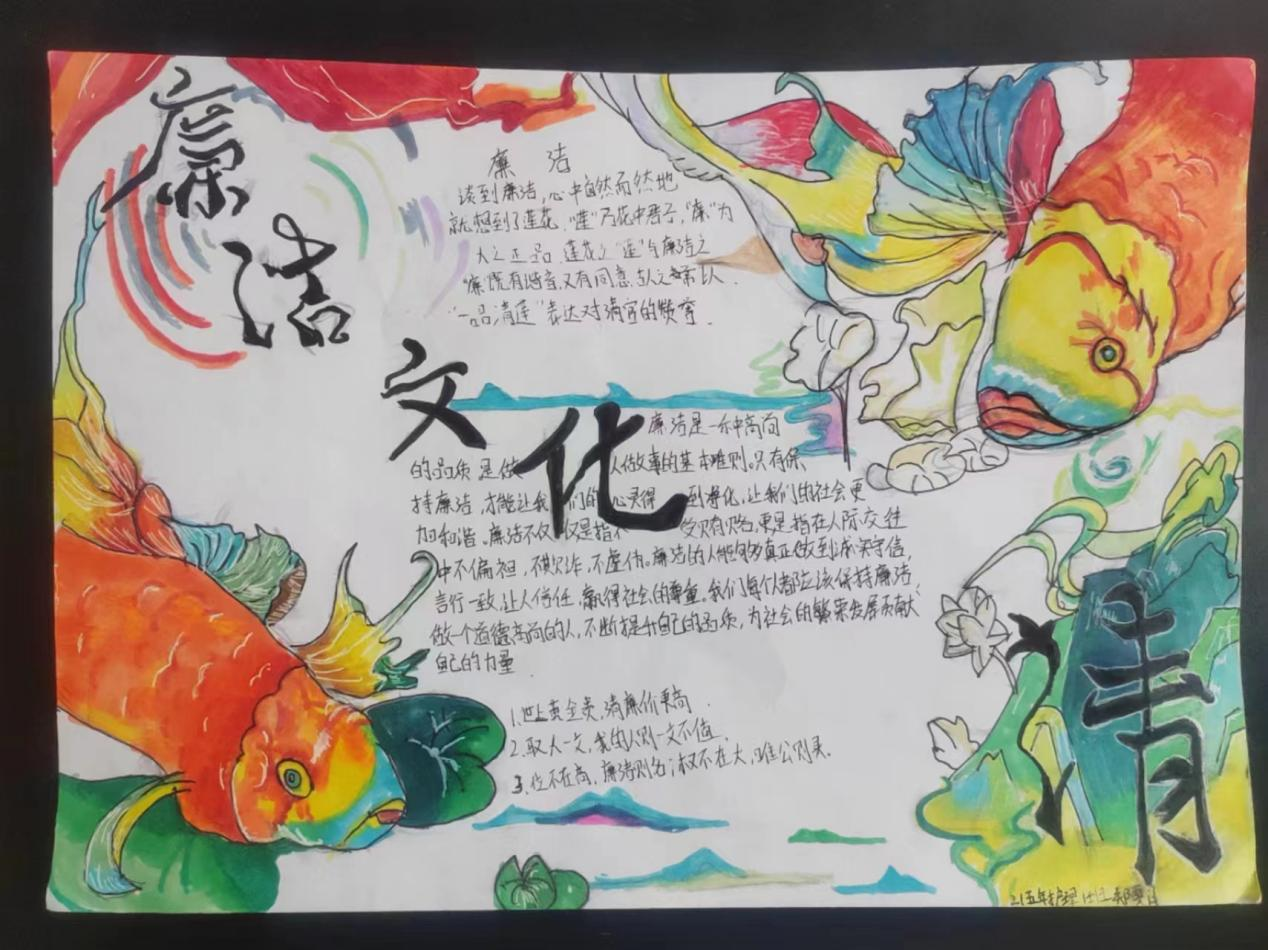 廉洁
文化
清
廉 洁
谈到廉洁，心中自然而然地
就想到了莲花，“莲”乃花中君子，“廉”为
人之正品，莲花之“莲”与廉洁之
“廉”既有谐音，又有同意，
“一品清莲”表达对清官的赞赏．
廉洁是一种高尚
的品质，是做人做事的基本准则。只有保
持廉洁，才能让我们的心灵得到净化，让我们的社会更
加和谐。廉洁不仅仅是指不受贿赂，更是指在人际交往
中不偏袒，不欺诈，不虚伪。廉洁的人能够真正做到诚实守信，
言行一致，让人信任，赢得社会的尊重。我们每个人都应该保持廉洁，
做一个道德高尚的人，不断提升自己的品质，为社会的繁荣发展贡献
自己的力量．
1.世上黄金贵，清廉价更高．
2.取人一文，我的人则一文不值．
3.位不在高，廉洁则名；权不在大，唯公则灵．